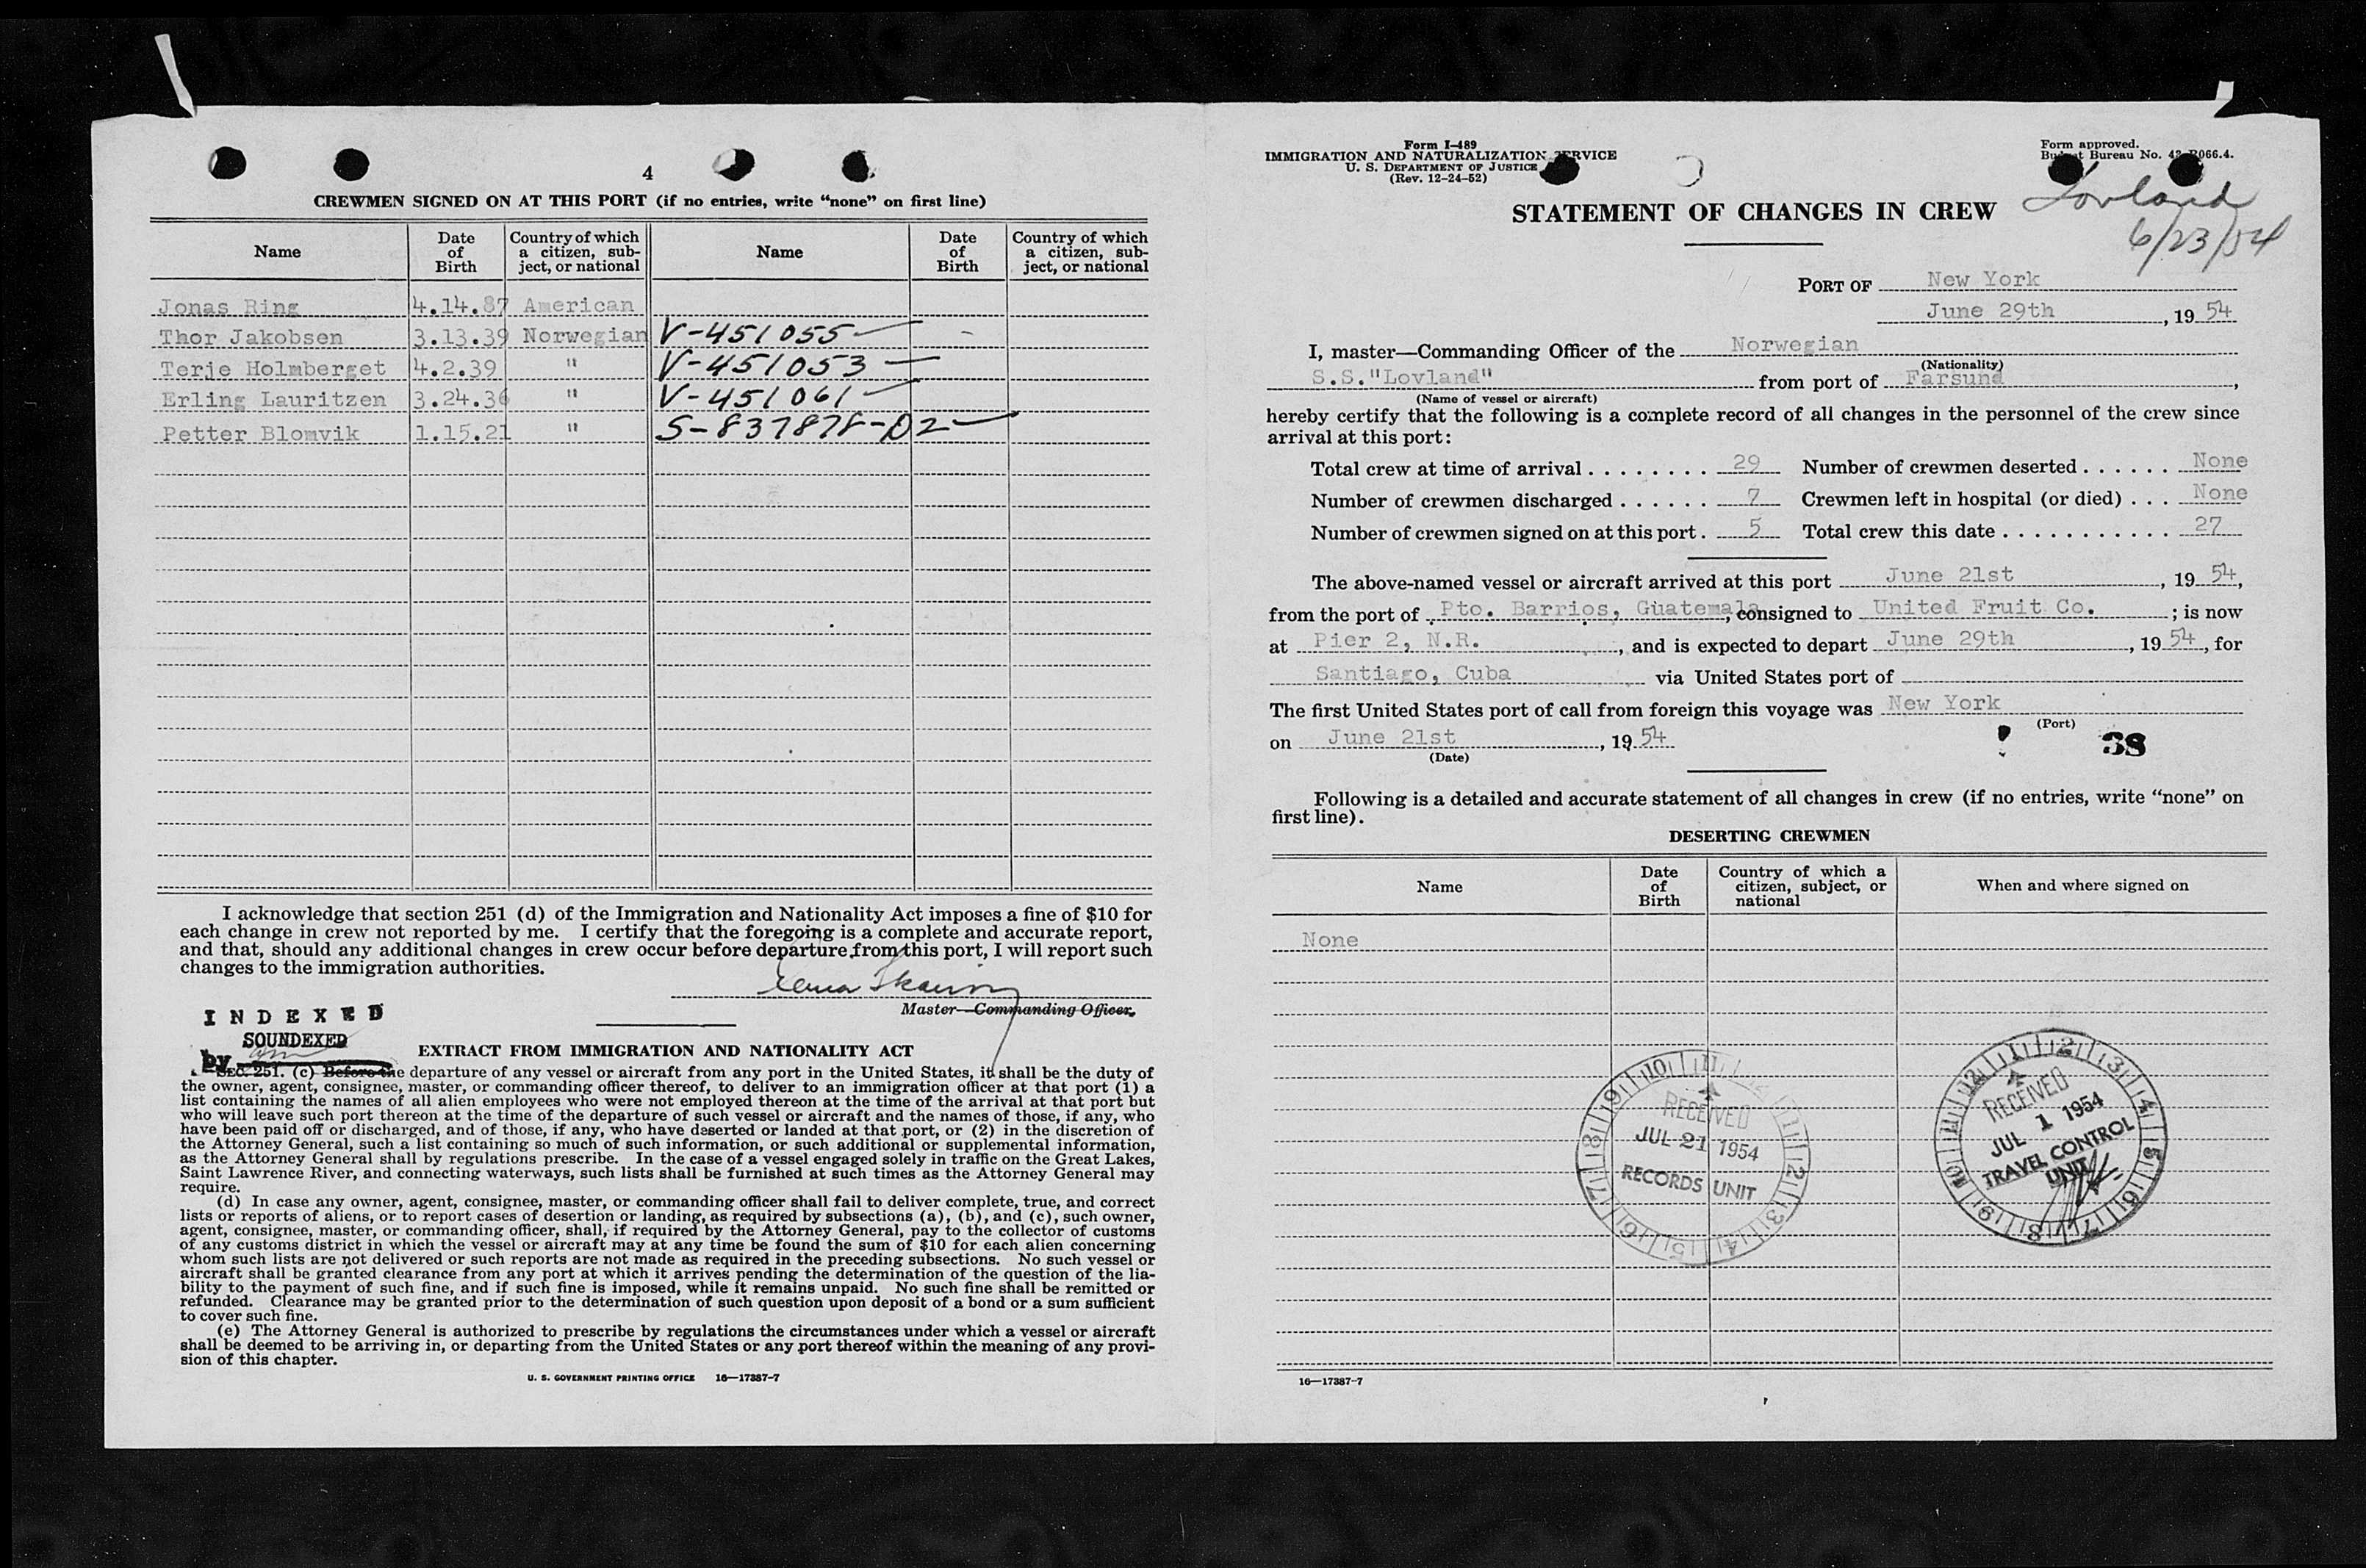 4
CREWMEN SIGNED ON AT THIS PORT (if no entries, write “none” on first line)
Name
Date of Birth
Country of which a citizen, subject, or national
Name
Date of Birth
Country of which a citizen, subject, or national
Jonas Ring 4.14.87 American
Thor Jakobsen 3.13.39 Norwegian V-451055
Terje Holmberget 4.2.39 " V-451053
Erling Lauritzen 3.24.36 " V-451061
Petter Blomvik 1.15.21 " S-837878-D2
I acknowledge that section 251 (d) of the Immigration and Nationality Act imposes a fine of $10 for
each change in crew not reported by me. I certify that the foregoing is a complete and accurate report,
and that, should any additional changes in crew occur before departure from this port, I will report such
changes to the immigration authorities.
Master—Commanding Officer.
INDEXED
SOUNDEXED
by
EXTRACT FROM IMMIGRATION AND NATIONALITY ACT
SEC. 251. (c) Before the departure of any vessel or aircraft from any port in the United States, it shall be the duty of
the owner, agent, consignee, master, or commanding officer thereof, to deliver to an immigration officer at that port (1) a
list containing the names of all alien employees who were not employed thereon at the time of the arrival at that port but
who will leave such port thereon at the time of the departure of such vessel or aircraft and the names of those, if any, who
have been paid off or discharged, and of those, if any, who have deserted or landed at that port, or (2) in the discretion of
the Attorney General, such a list containing so much of such information, or such additional or supplemental information,
as the Attorney General shall by regulations prescribe. In the case of a vessel engaged solely in traffic on the Great Lakes,
Saint Lawrence River, and connecting waterways, such lists shall be furnished at such times as the Attorney General may
require.
(d) In case any owner, agent, consignee, master, or commanding officer shall fail to deliver complete, true, and correct
lists or reports of aliens, or to report cases of desertion or landing, as required by subsections (a), (b), and (c), such owner,
agent, consignee, master, or commanding officer, shall, if required by the Attorney General, pay to the collector of customs
of any customs district in which the vessel or aircraft may at any time be found the sum of $10 for each alien concerning
whom such lists are not delivered or such reports are not made as required in the preceding subsections. No such vessel or
aircraft shall be granted clearance from any port at which it arrives pending the determination of the question of the lia-
bility to the payment of such fine, and if such fine is imposed, while it remains unpaid. No such fine shall be remitted or
refunded. Clearance may be granted prior to the determination of such question upon deposit of a bond or a sum sufficient
to cover such fine.
(e) The Attorney General is authorized to prescribe by regulations the circumstances under which a vessel or aircraft
shall be deemed to be arriving in, or departing from the United States or any port thereof within the meaning of any provi-
sion of this chapter.
U. S. GOVERNMENT PRINTING OFFICE 16—17387-7
Form I-489
IMMIGRATION AND NATURALIZATION SERVICE
U. S. DEPARTMENT OF JUSTICE
(Rev. 12-24-52)
Form approved.
Budget Bureau No. 43-R066.4.
Lovland
6/23/54
STATEMENT OF CHANGES IN CREW
PORT OF New York
June 29th, 19 54
I, master—Commanding Officer of the Norwegian
(Nationality)
S.S."Lovland" from port of Farsund,
(Name of vessel or aircraft)
hereby certify that the following is a complete record of all changes in the personnel of the crew since
arrival at this port:
Total crew at time of arrival . . . . . . . . 29 Number of crewmen deserted . . . . . . None
Number of crewmen discharged . . . . . . 7 Crewmen left in hospital (or died) . . . None
Number of crewmen signed on at this port . 5 Total crew this date . . . . . . . . . . . 27
The above-named vessel or aircraft arrived at this port June 21st, 19 54,
from the port of Pto. Barrios, Guatemala, consigned to United Fruit Co. ; is now
at Pier 2, N.R., and is expected to depart June 29th, 19 54, for
Santiago, Cuba via United States port of
The first United States port of call from foreign this voyage was New York
(Port)
on June 21st, 19 54
(Date)
38
Following is a detailed and accurate statement of all changes in crew (if no entries, write “none” on
first line).
DESERTING CREWMEN
Name
Date of Birth
Country of which a citizen, subject, or national
When and where signed on
None
RECEIVED
JUL 21 1954
RECORDS UNIT
RECEIVED
JUL 1 1954
TRAVEL CONTROL
UNIT
16—17387-7